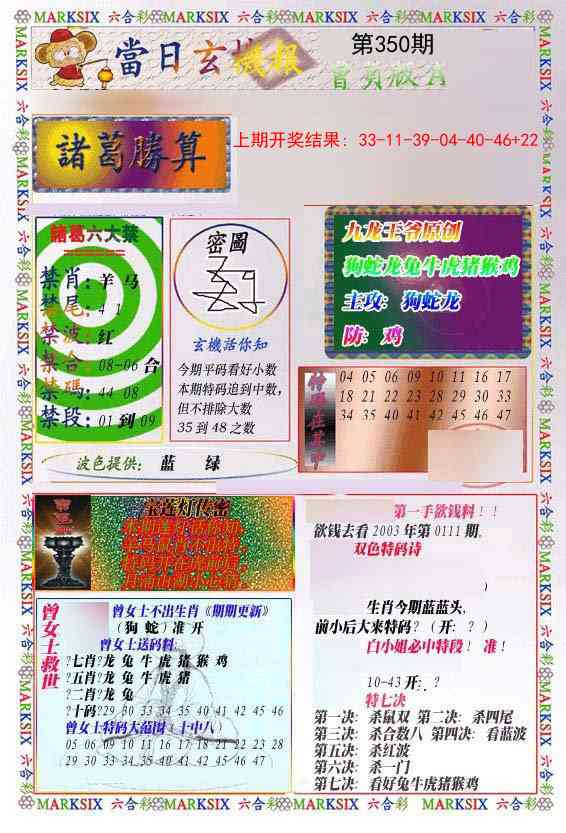 MARKSIX 六合彩 MARKSIX 六合彩 MARKSIX 六合彩 MARKSIX 六合彩
當日玄機報
第350期
曾員版A
諸葛勝算
上期开奖结果: 33-11-39-04-40-46+22
諸葛六大禁
禁肖: 羊 马
禁尾: 4 1
禁波: 红
禁合: 08-06 合
禁碼: 44 08
禁段: 01 到 09
密圖
玄機活你知
今期平码看好小数
本期特码追到中数,
但不排除大数
35 到 48 之数
波色提供: 蓝 绿
九龙王爷原创
狗蛇龙兔牛虎猪猴鸡
主攻: 狗蛇龙
防: 鸡
04 05 06 09 10 11 16 17
18 21 22 23 28 29 30 33
34 35 40 41 42 45 46 47
宝莲灯传密
曾女士救世
曾女士不出生肖《期期更新》
(狗 蛇) 准 开
曾女士送码料:
?七肖?龙 兔 牛 虎 猪 猴 鸡
?五肖?龙 兔 牛 虎 猪
?二肖?龙 兔
?十码?29 30 33 34 35 40 41 42 45 46
曾女士特码大范围 (十中八)
05 06 09 10 11 16 17 18 21 22 23 28
29 30 33 34 35 40 41 42 45 46 47
第一手欲钱料!!
欲钱去看 2003 年第 0111 期.
双色特码诗
)
生肖今期蓝蓝头,
前小后大来特码? (开: ?)
白小姐必中特段! 准!
10-43 开: ?
特七决
第一决: 杀鼠双 第二决: 杀四尾
第三决: 杀合数八 第四决: 看蓝波
第五决: 杀红波
第六决: 杀一门
第七决: 看好兔牛虎猪猴鸡
MARKSIX 六合彩 MARKSIX 六合彩 MARKSIX 六合彩 MARKSIX 六合彩